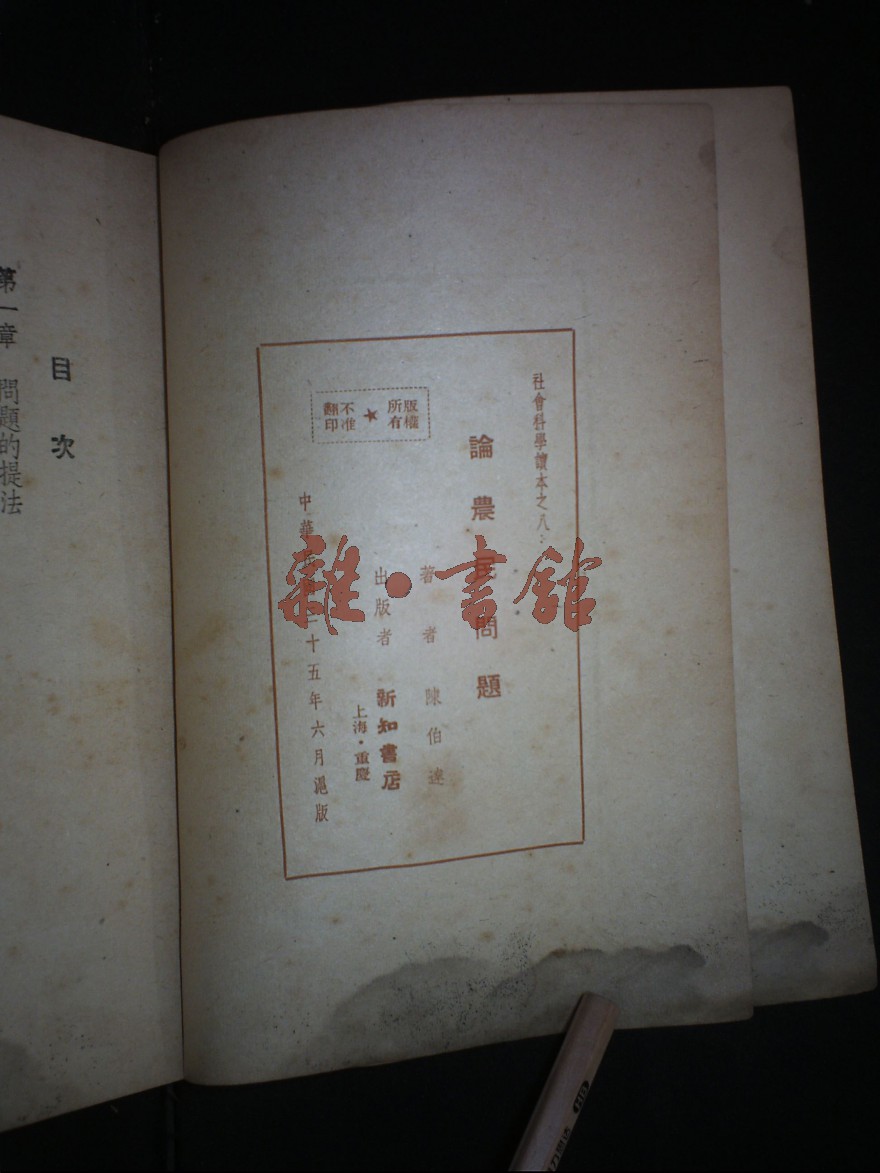 社會科學讀本之八：
論農民問題
著者 陳伯達
版權所有 ★ 不准翻印
出版者 新知書店
上海・重慶
中華民國三十五年六月滬版
目次
第一章 問題的提法
雜・書館
HB